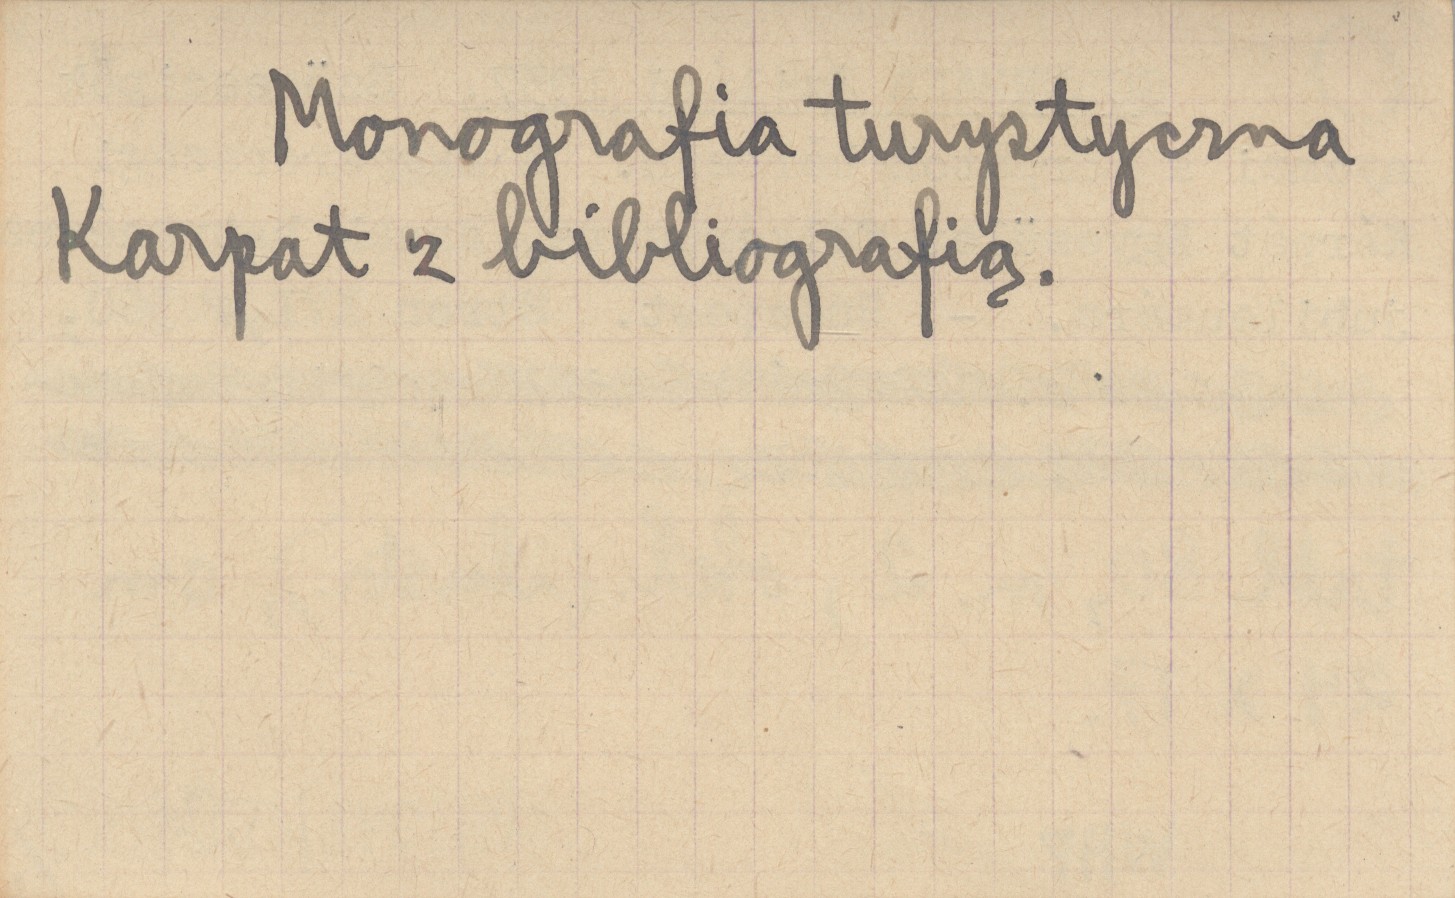 Monografia turystyczna
Karpat z bibliografią.